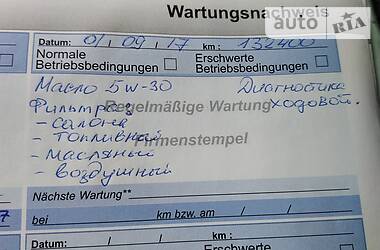 Wartungsnachweis
auto RIA
Datum: 01 / 09 / 17 km: 132400
Normale Betriebsbedingungen Erschwerte Betriebsbedingungen
Масло 5w-30 Диагностика
Фильтра Regelmäßige Wartung ходовой.
- салона
- топливный Firmenstempel
- масляный
- воздушный
Nächste Wartung**
7 bei / km bzw. am / /
Datum: / / km:
Normale Erschwerte